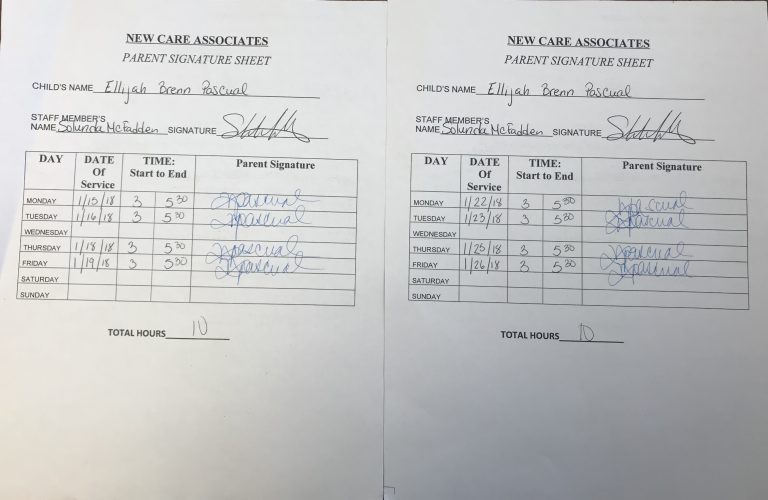 NEW CARE ASSOCIATES
PARENT SIGNATURE SHEET
CHILD'S NAME Ellijah Brenn Pascual
STAFF MEMBER'S
NAME Solunda McFadden SIGNATURE
DAY DATE Of Service TIME: Start to End Parent Signature
MONDAY 1/15/18 3 5:30 pascual
TUESDAY 1/16/18 3 5:30 pascual
WEDNESDAY
THURSDAY 1/18/18 3 5:30 pascual
FRIDAY 1/19/18 3 5:30 pascual
SATURDAY
SUNDAY
TOTAL HOURS 10
NEW CARE ASSOCIATES
PARENT SIGNATURE SHEET
CHILD'S NAME Ellijah Brenn Pascual
STAFF MEMBER'S
NAME Solunda McFadden SIGNATURE
DAY DATE Of Service TIME: Start to End Parent Signature
MONDAY 1/22/18 3 5:30 pascual
TUESDAY 1/23/18 3 5:30 pascual
WEDNESDAY
THURSDAY 1/25/18 3 5:30 pascual
FRIDAY 1/26/18 3 5:30 pascual
SATURDAY
SUNDAY
TOTAL HOURS 10